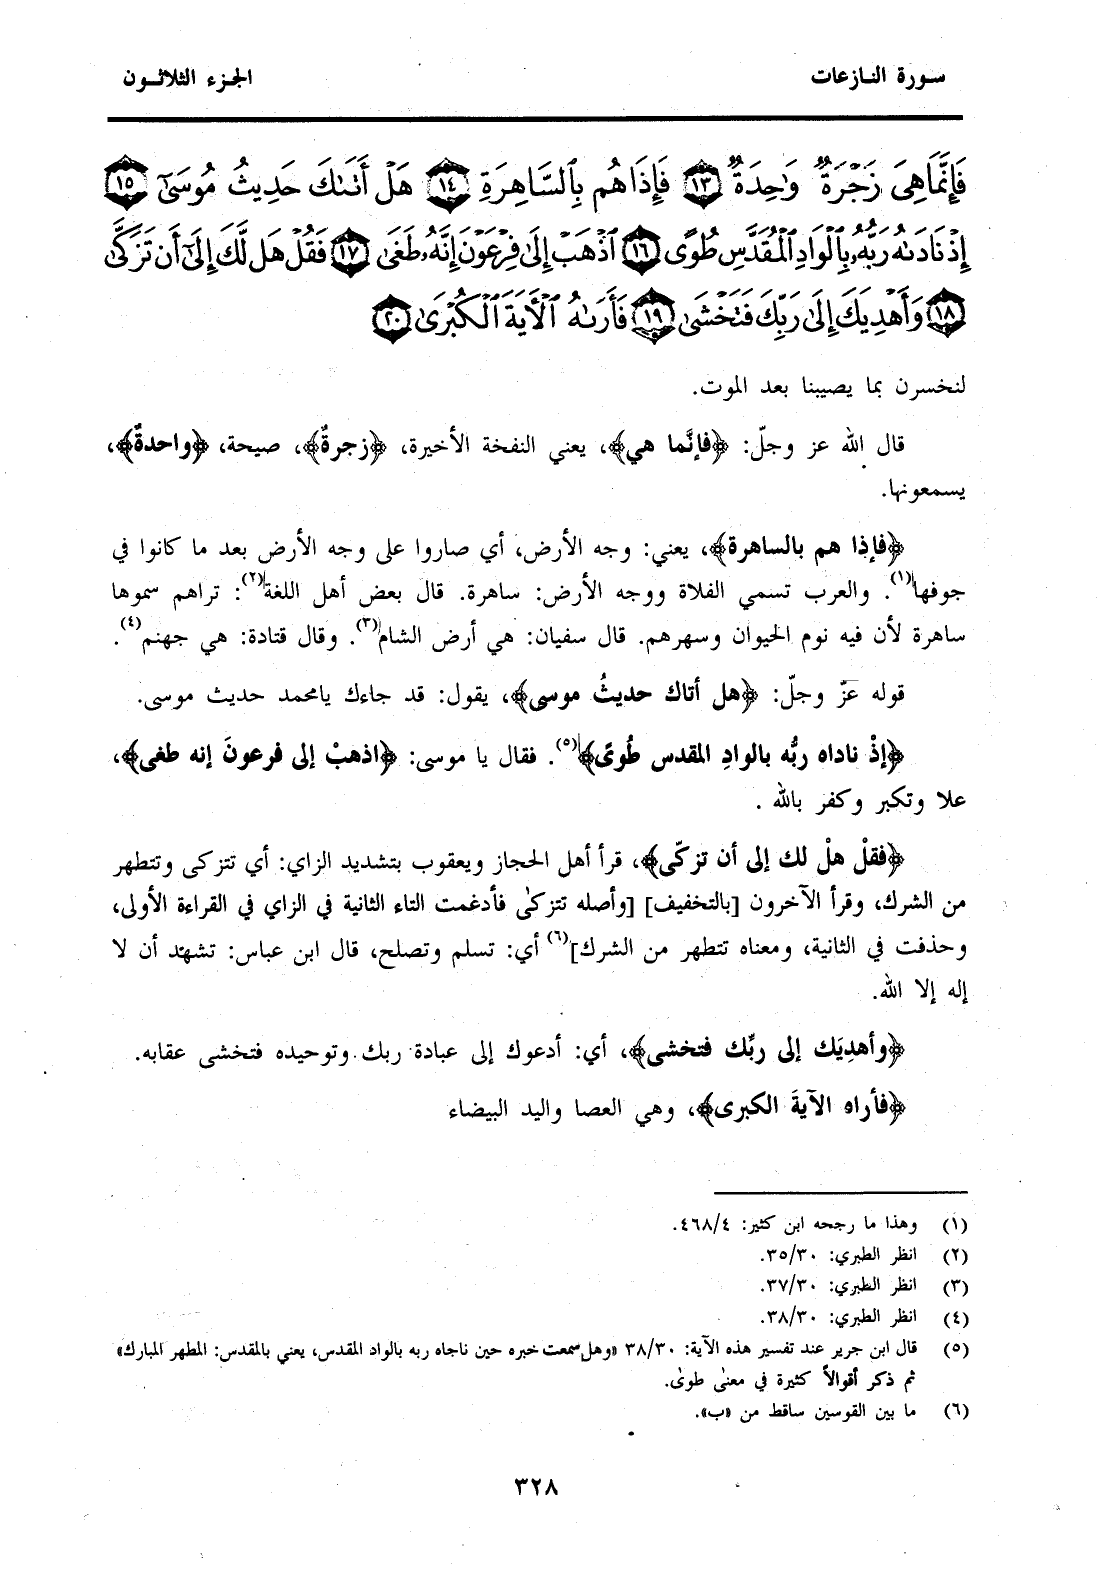 سورة النازعات
الجزء الثلاثون
فَإِنَّمَا هِىَ زَجْرَةٌ وَٰحِدَةٌ ١٣ فَإِذَا هُم بِٱلسَّاهِرَةِ ١٤ هَلْ أَتَىٰكَ حَدِيثُ مُوسَىٰٓ ١٥
إِذْ نَادَىٰهُ رَبُّهُۥ بِٱلْوَادِ ٱلْمُقَدَّسِ طُوًى ١٦ ٱذْهَبْ إِلَىٰ فِرْعَوْنَ إِنَّهُۥ طَغَىٰ ١٧ فَقُلْ هَل لَّكَ إِلَىٰٓ أَن تَزَكَّىٰ
١٨ وَأَهْدِيَكَ إِلَىٰ رَبِّكَ فَتَخْشَىٰ ١٩ فَأَرَىٰهُ ٱلْـَٔايَةَ ٱلْكُبْرَىٰ ٢٠
لنخسرن بما يصيبنا بعد الموت.
قال الله عز وجلّ: ﴿فإنَّما هي﴾، يعني النفخة الأخيرة، ﴿زجرةٌ﴾، صيحة، ﴿واحدةٌ﴾،
يسمعونها.
﴿فإذا هم بالساهرة﴾، يعني: وجه الأرض، أي صاروا على وجه الأرض بعد ما كانوا في
جوفها(١). والعرب تسمي الفلاة ووجه الأرض: ساهرة. قال بعض أهل اللغة(٢): تراهم سموها
ساهرة لأن فيه نوم الحيوان وسهرهم. قال سفيان: هي أرض الشام(٣). وقال قتادة: هي جهنم(٤).
قوله عزّ وجلّ: ﴿هل أتاك حديثُ موسى﴾، يقول: قد جاءك يامحمد حديث موسى.
﴿إذْ ناداه ربُّه بالوادِ المقدس طُوىً﴾(٥). فقال يا موسى: ﴿اذهبْ إلى فرعونَ إنه طغى﴾،
علا وتكبر وكفر بالله .
﴿فقلْ هلْ لك إلى أن تزكّى﴾، قرأ أهل الحجاز ويعقوب بتشديد الزاي: أي تتزكى وتتطهر
من الشرك، وقرأ الآخرون [بالتخفيف] [وأصله تتزكىٰ فأدغمت التاء الثانية في الزاي في القراءة الأولى،
وحذفت في الثانية، ومعناه تتطهر من الشرك](٦) أي: تسلم وتصلح، قال ابن عباس: تشهد أن لا
إله إلا الله.
﴿وأهدِيَك إلى ربِّك فتخشى﴾، أي: أدعوك إلى عبادة ربك وتوحيده فتخشى عقابه.
﴿فأراه الآيةَ الكبرى﴾، وهي العصا واليد البيضاء
(١) وهذا ما رجحه ابن كثير: ٤٦٨/٤.
(٢) انظر الطبري: ٣٥/٣٠.
(٣) انظر الطبري: ٣٧/٣٠.
(٤) انظر الطبري: ٣٨/٣٠.
(٥) قال ابن جرير عند تفسير هذه الآية: ٣٨/٣٠ «وهل سمعت خبره حين ناجاه ربه بالواد المقدس، يعني بالمقدس: المطهر المبارك»
ثم ذكر أقوالاً كثيرة في معنىٰ طوىٰ.
(٦) ما بين القوسين ساقط من «ب».
٣٢٨